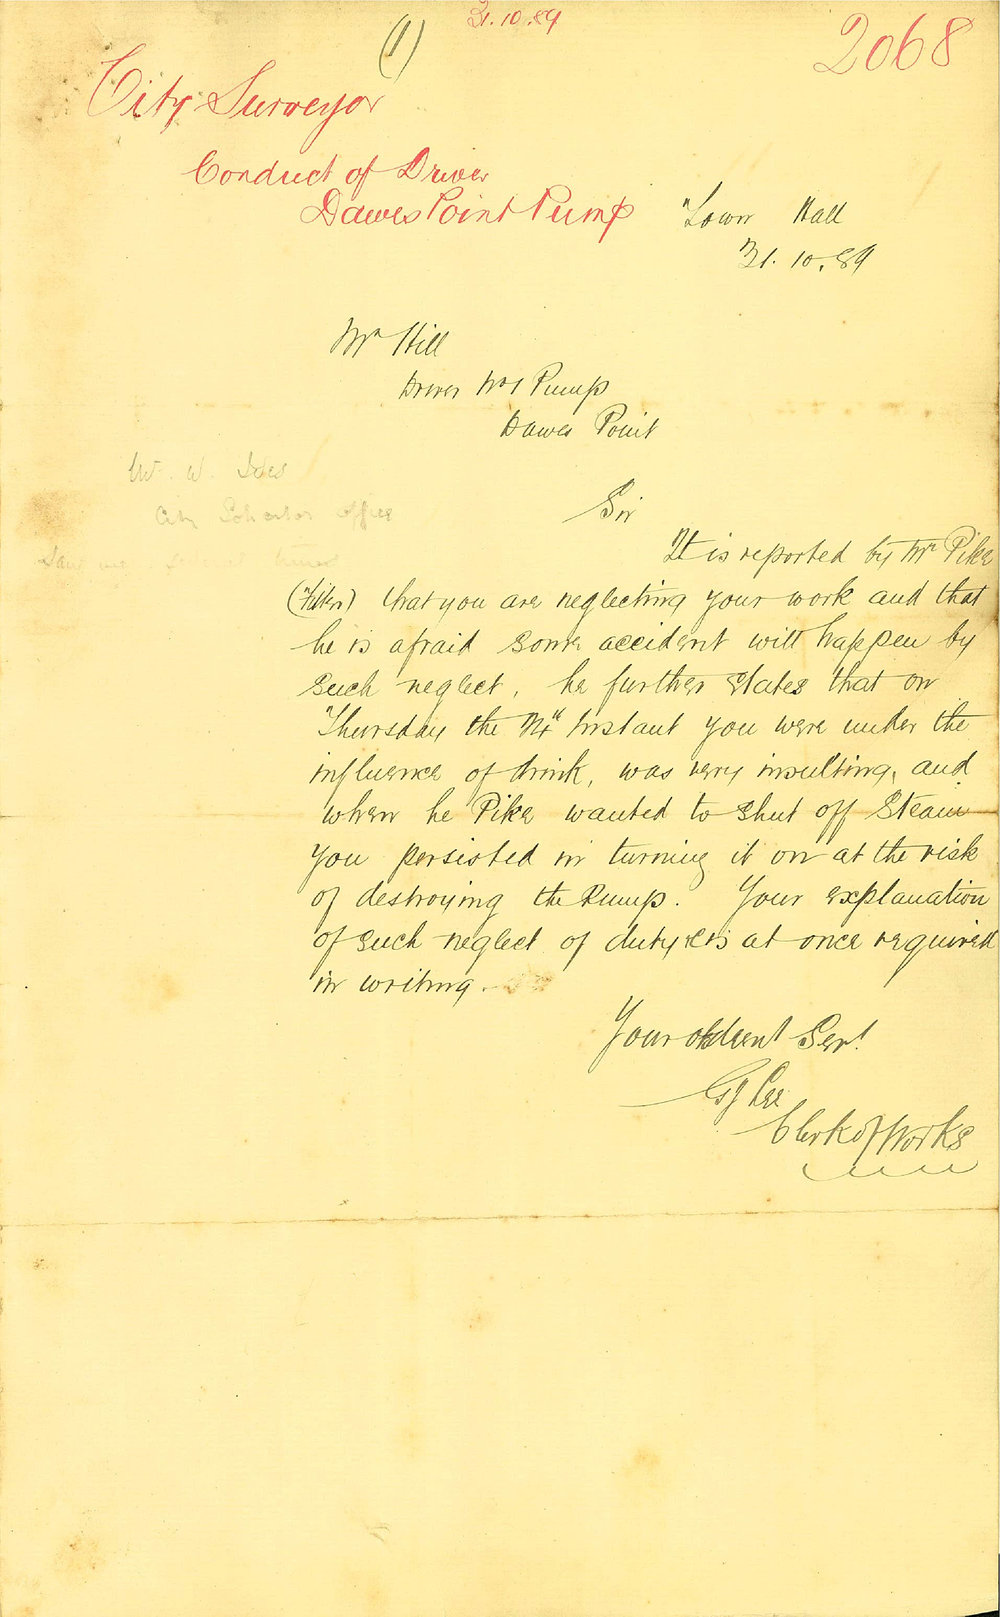 (1)
21.10.89
2068
City Surveyor
Conduct of Driver
Dawes Point Pump
Town Hall
31.10.89
Mr Hill
Driver No 1 Pump
Dawes Point
Mr. W.
City Solicitor office
Sir
It is reported by Mr Pike
(Fitter) that you are neglecting your work and that
he is afraid some accident will happen by
such neglect, he further states that on
Thursday the Instant you were under the
influence of drink, was very insulting, and
when he Pike wanted to shut off Steam
you persisted in turning it on at the risk
of destroying the Pump. Your explanation
of such neglect of duty is at once required
in writing.
Your obdient Servt.
Lee
Clerk of Works